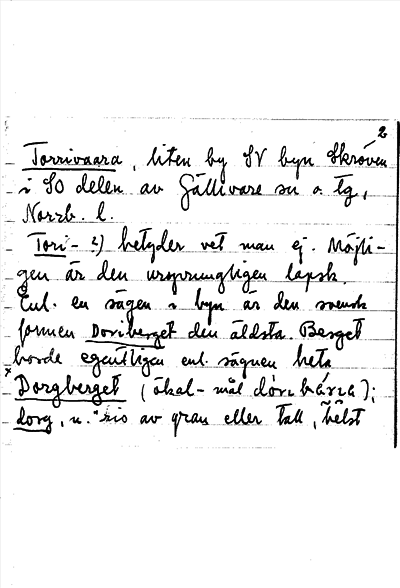 2
Torrivaara, liten by SV byn Skröven
i SO delen av Gällivare sn o. tg,
Norrb. l.
Tori- 2) betyder vet man ej. Möjli-
gen är den ursprungligen lapsk.
Enl. en sägen i byn är den svensk
formen Doriberget den äldsta. Berget
borde egentligen enl. sägnen heta
× Dorgberget (ökal-mål
dorg, n. "ris av gran eller tall, helst